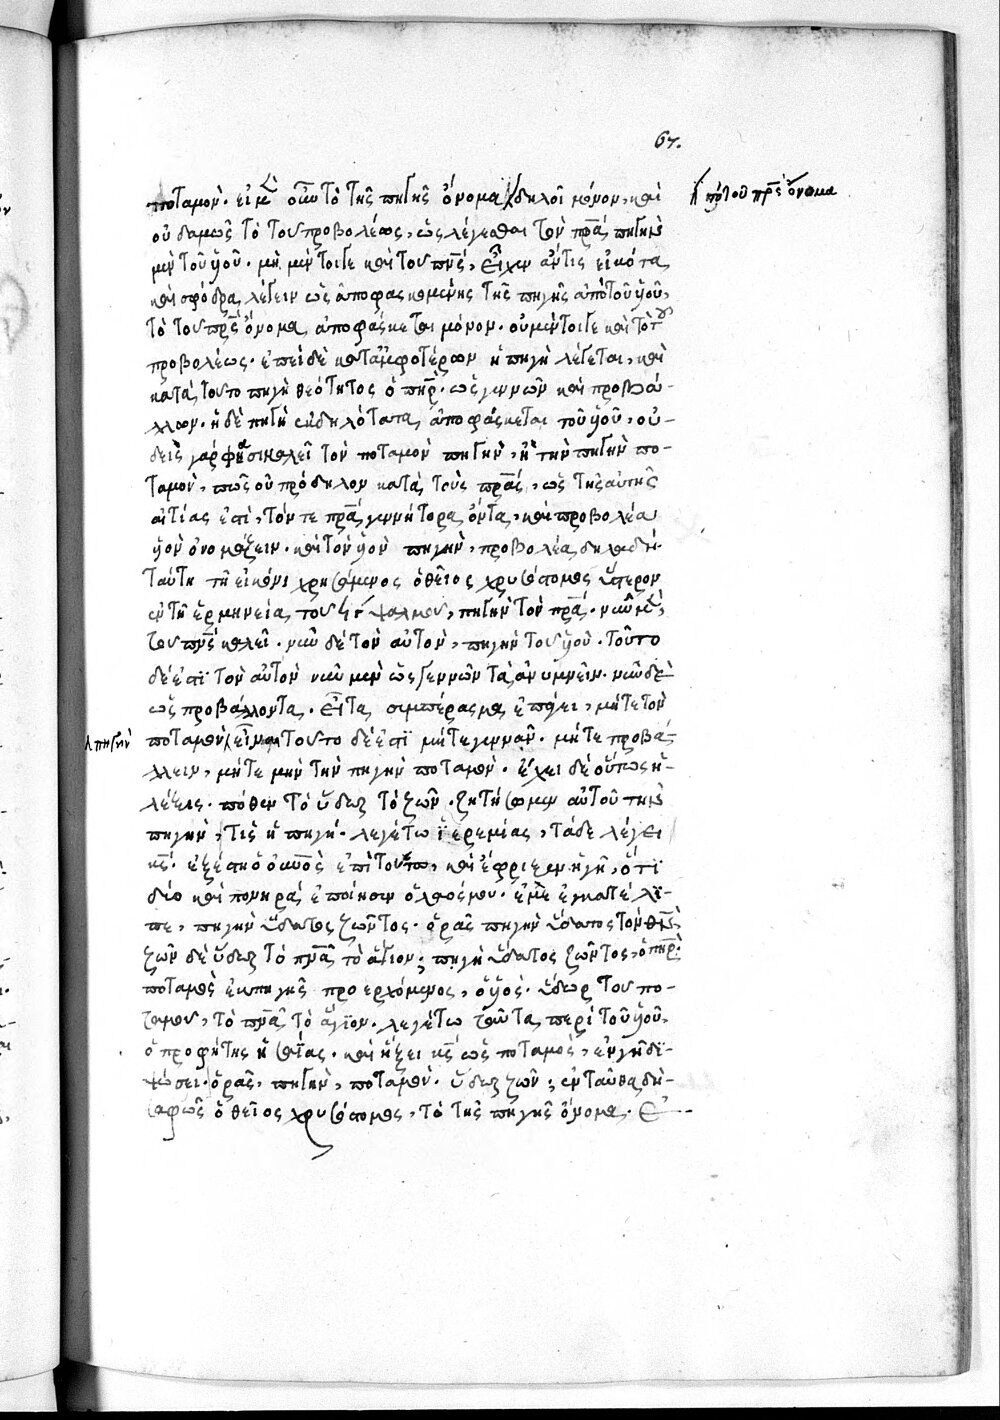 67.
ποταμόν. εἰ μὲν οὖν τὸ τῆς πηγῆς ὄνομα δηλοῖ μόνον, καὶ
ἢ τὸ τοῦ πρς ὄνομα
οὐδαμῶς τὸ τοῦ προβολέως, ὡς λέγεσθαι τὸν πρα πηγὴν
μὲν τοῦ ὑοῦ. μὴ μέντοιγε καὶ τοῦ πνς, εἶχεν ἄν τις εἰκότα
καὶ σφόδρα λέγειν ὡς ἀποφασκομένης τῆς πηγῆς ἀπὸ τοῦ ὑοῦ,
τὸ τοῦ πρς ὄνομα ἀποφάσκεται μόνον. οὐ μέντοιγε καὶ τὸ τοῦ
προβολέως. ἐπεὶ δὲ κατ' ἀμφοτέρων ἡ πηγὴ λέγεται, καὶ
κατὰ τοῦτο πηγὴ θεότητος ὁ πηρ. ὡς γεννῶν καὶ προβάλ-
λων. ἡ δὲ πηγὴ ἐκδηλότατα ἀποφάσκεται τοῦ ὑοῦ, οὐ-
δεὶς γάρ φησι καλεῖ τὸν ποταμὸν πηγὴν, ἢ τὴν πηγὴν πο-
ταμόν, πῶς οὐ πρόδηλον κατὰ τοὺς πρας, ὡς τῆς αὐτῆς
αἰτίας ἐστὶ, τόν τε πρα γεννήτορα ὄντα, καὶ προβολέα
ὑὸν ὀνομάζειν. καὶ τὸν ὑὸν πηγὴν, προβολέα δηλαδή.
Ταύτῃ τῇ εἰκόνι χρησάμενος ὁ θεῖος χρυσόστομος ὕστερον
ἐν τῇ ἑρμηνείᾳ τοῦ ψαλμοῦ, πηγὴν τὸν πρα. νῦν μὲν
τοῦ πνς καλεῖ. νῦν δὲ τὸν αὐτὸν, πηγὴν τοῦ ὑοῦ. τοῦτο
δέ ἐστι τὸν αὐτὸν νῦν μὲν ὡς γεννῶντα ἀνυμνεῖν. νῦν δὲ
ὡς προβάλλοντα. εἶτα συμπέρασμα ἐπάγει, μήτε τὸν
ἢ πηγὴν
ποταμὸν εἶναι τοῦτο δέ ἐστι μήτε γεννᾶν. μήτε προβάλ-
λειν, μήτε μὴν τὴν πηγὴν ποταμόν. ἔχει δὲ οὕτως ἡ
λέξις. πόθεν τὸ ὕδωρ τὸ ζῶν. ζητήσωμεν αὐτοῦ τὴν
πηγὴν, τίς ἡ πηγή. λεγέτω ἱερεμίας, τάδε λέγει
κς. ἐξέστη ὁ οὐνος ἐπὶ τούτῳ, καὶ ἔφριξεν ἡ γῆ, ὅτι
δύο καὶ πονηρὰ ἐποίησεν ὁ λαός μου. ἐμὲ ἐγκατέλι-
πε, πηγὴν ὕδατος ζῶντος. ὁρᾶς πηγὴν ὕδατος τὸν θν,
ζῶν δὲ ὕδωρ τὸ πνα τὸ ἅγιον; πηγὴ ὕδατος ζῶντος, ὁ πηρ.
ποταμὸς ἐκ πηγῆς προερχόμενος, ὁ ὑός. ὕδωρ τοῦ πο-
ταμοῦ, τὸ πνα τὸ ἅγιον. λεγέτω ταῦτα περὶ τοῦ ὑοῦ,
ὁ προφήτης ἡσαΐας. καὶ ἥξει κς ὡς ποταμὸς, ἐν γῇ δι-
ψώσει. ὁρᾶς, πηγὴν, ποταμὸν. ὕδωρ ζῶν; ἐνταῦθα δὴ
σαφῶς ὁ θεῖος χρυσόστομος, τὸ τῆς πηγῆς ὄνομα. ἐ-